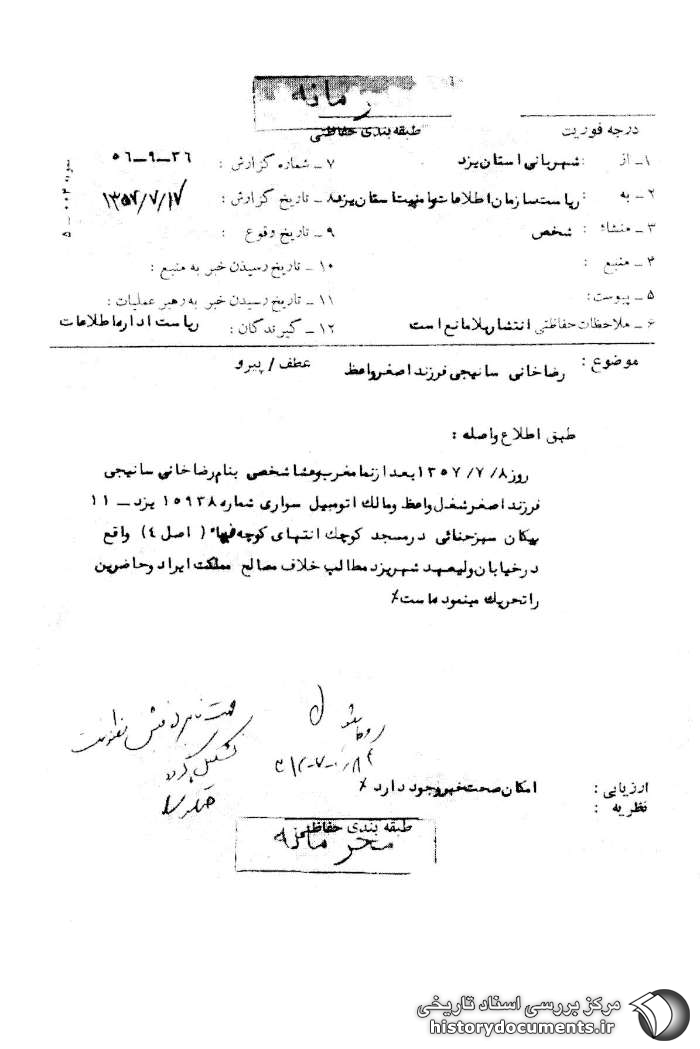 محرمانه
درجه فوریت طبقه بندی حفاظتی
۱ـ از : شهربانی استان یزد ۷ ـ شماره گزارش : ۳۶ـ۹ـ۵۶
۲ـ به : ریاست سازمان اطلاعات وامنیت استان یزد ۸ـ تاریخ گزارش : ۱۳۵۷/۷/۱۷
۳ ـ منشاء : شخص ۹ ـ تاریخ وقوع :
۴ ـ منبع : ۱۰ ـ تاریخ رسیدن خبر به منبع :
۵ ـ پیوست: ۱۱ ـ تاریخ رسیدن خبر به رهبر عملیات :
۶ ـ ملاحظات حفاظتی انتشار بلامانع است ۱۲ـ گیرندگان : ریاست اداره اطلاعات
موضوع : رضاخانی سانیجی فرزند اصغر واعظ عطف / پیرو
طبق اطلاع واصله :
روز ۱۳۵۷/۷/۸ بعد از نماز مغرب وعشا شخصی بنام رضاخانی سانیجی
فرزند اصغر شغل واعظ ومالک اتومبیل سواری شماره ۱۵۹۳۸ یزد ــ ۱۱
پیکان سبز حنائی در مسجد کوچک انتهای کوچه ( اصل ۴) واقع
درخیابان ولیعهد شهر یزد مطالب خلاف مصالح مملکت ایراد وحاضرین
را تحریک مینموده است٪
ارزیابی : امکان صحت خبر وجود دارد ٪
نظریه :
طبقه بندی حفاظتی
محرمانه
مرکز بررسی اسناد تاریخی
historydocuments.ir